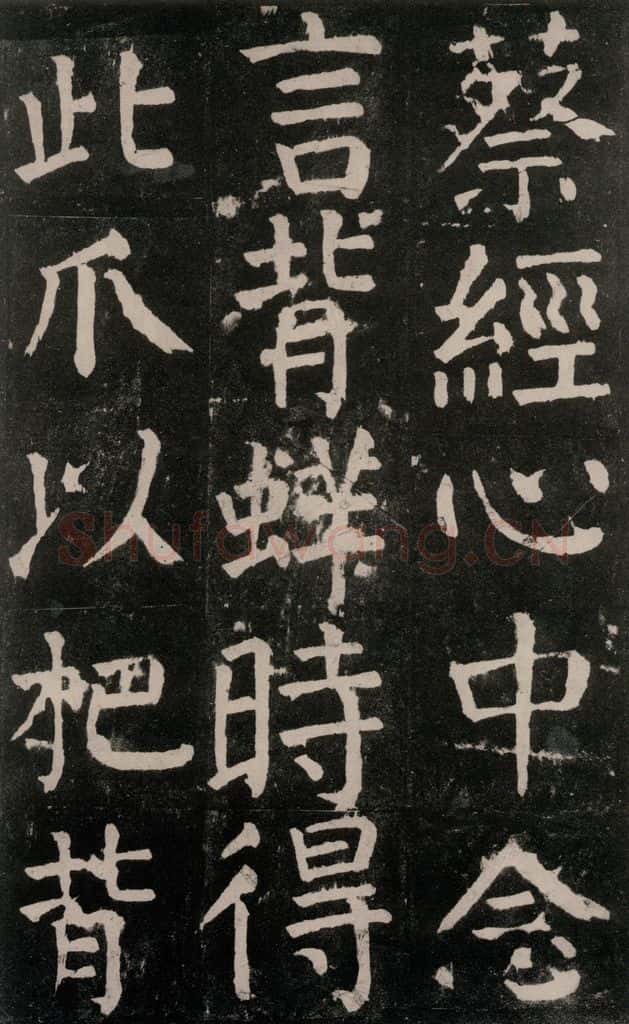 蔡經心中念
言背蛘時得
此爪以杷背
Shufawang.CN